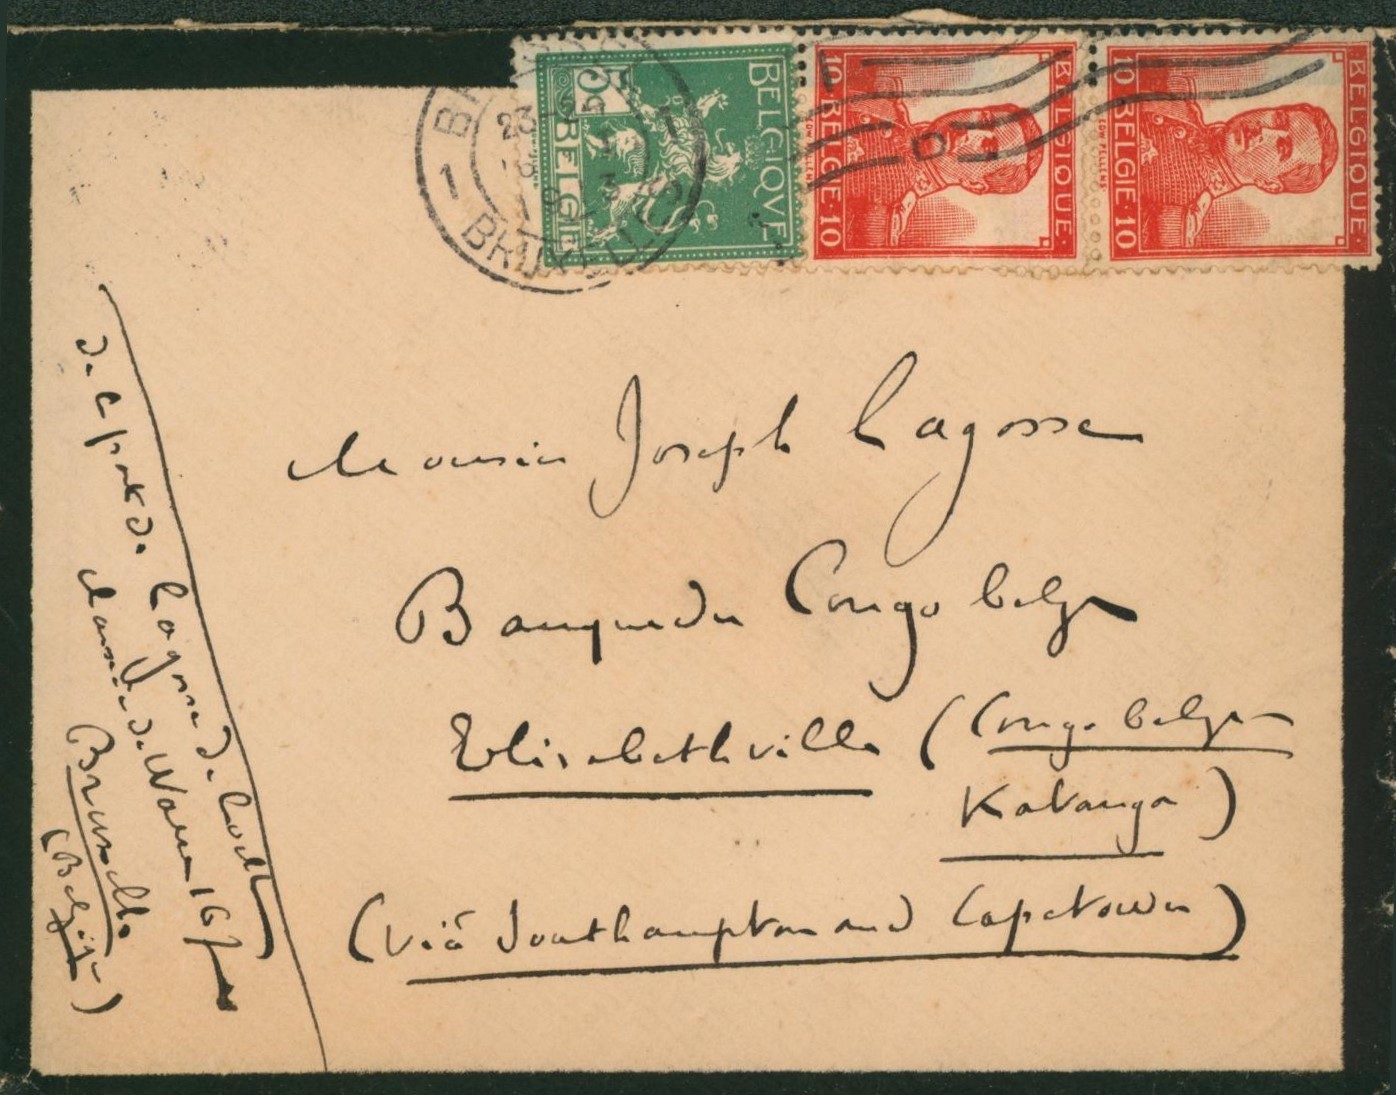 BELGIQUE
5
BELGIE
10 BELGIQUE
BELGIE · 10
10 BELGIQUE
BELGIE · 10
1 BRUSSEL 1
23-24
3
BRUXELLES
Monsieur Joseph Lagosse
Banque du Congo belge
Elisabethville (Congo belge
Katanga)
(Viâ Southampton and Capetown)
de la part de Lagosse de
chaussée de Wavre 16
Bruxelles
(Belgique)